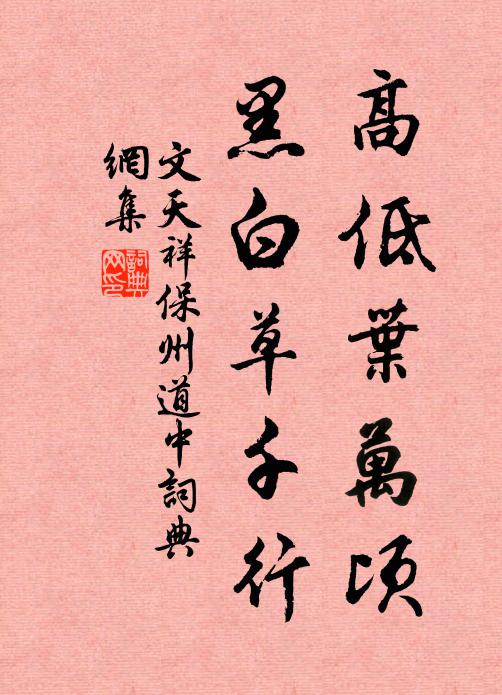 高低葉萬頃
黑白草千行
文天祥保州道中詞典
網集
詞典網印